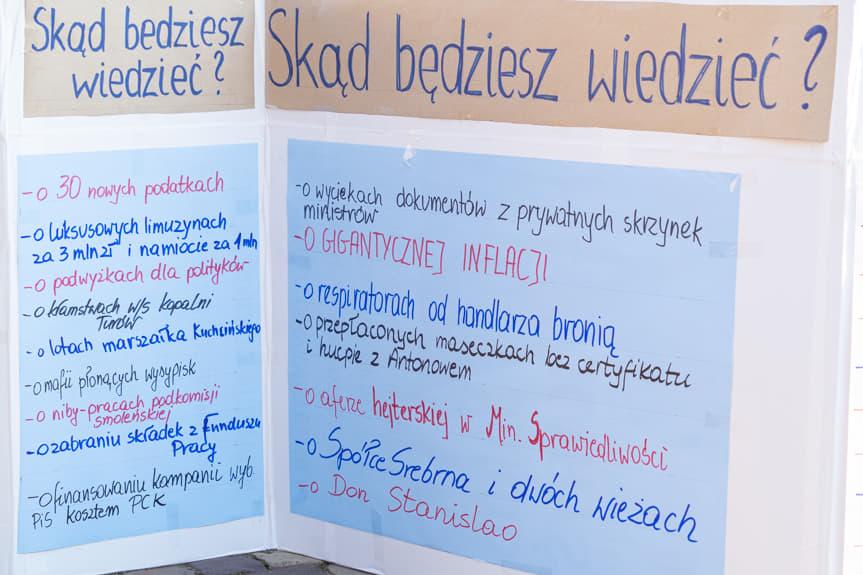 Skąd będziesz
wiedzieć?
- o 30 nowych podatkach
- o luksusowych limuzynach
za 3 mln zł i namiocie za 1 mln
- o podwyżkach dla polityków
- o kłamstwach w/s kopalni
Turów
- o lotach marszałka Kuchcińskiego
- o mafii płonących wysypisk
- o niby-pracach podkomisji
smoleńskiej
- o zabraniu składek z Funduszu
Pracy
- o finansowaniu kampanii wyb.
PiS kosztem PCK
Skąd będziesz wiedzieć?
- o wyciekach dokumentów z prywatnych skrzynek
ministrów
- O GIGANTYCZNEJ INFLACJI
- o respiratorach od handlarza bronią
- o przepłaconych maseczkach bez certyfikatu
i hucpie z Antonowem
- o aferze hejterskiej w Min. Sprawiedliwości
- o Spółce Srebrna i dwóch wieżach
- o Don Stanislao